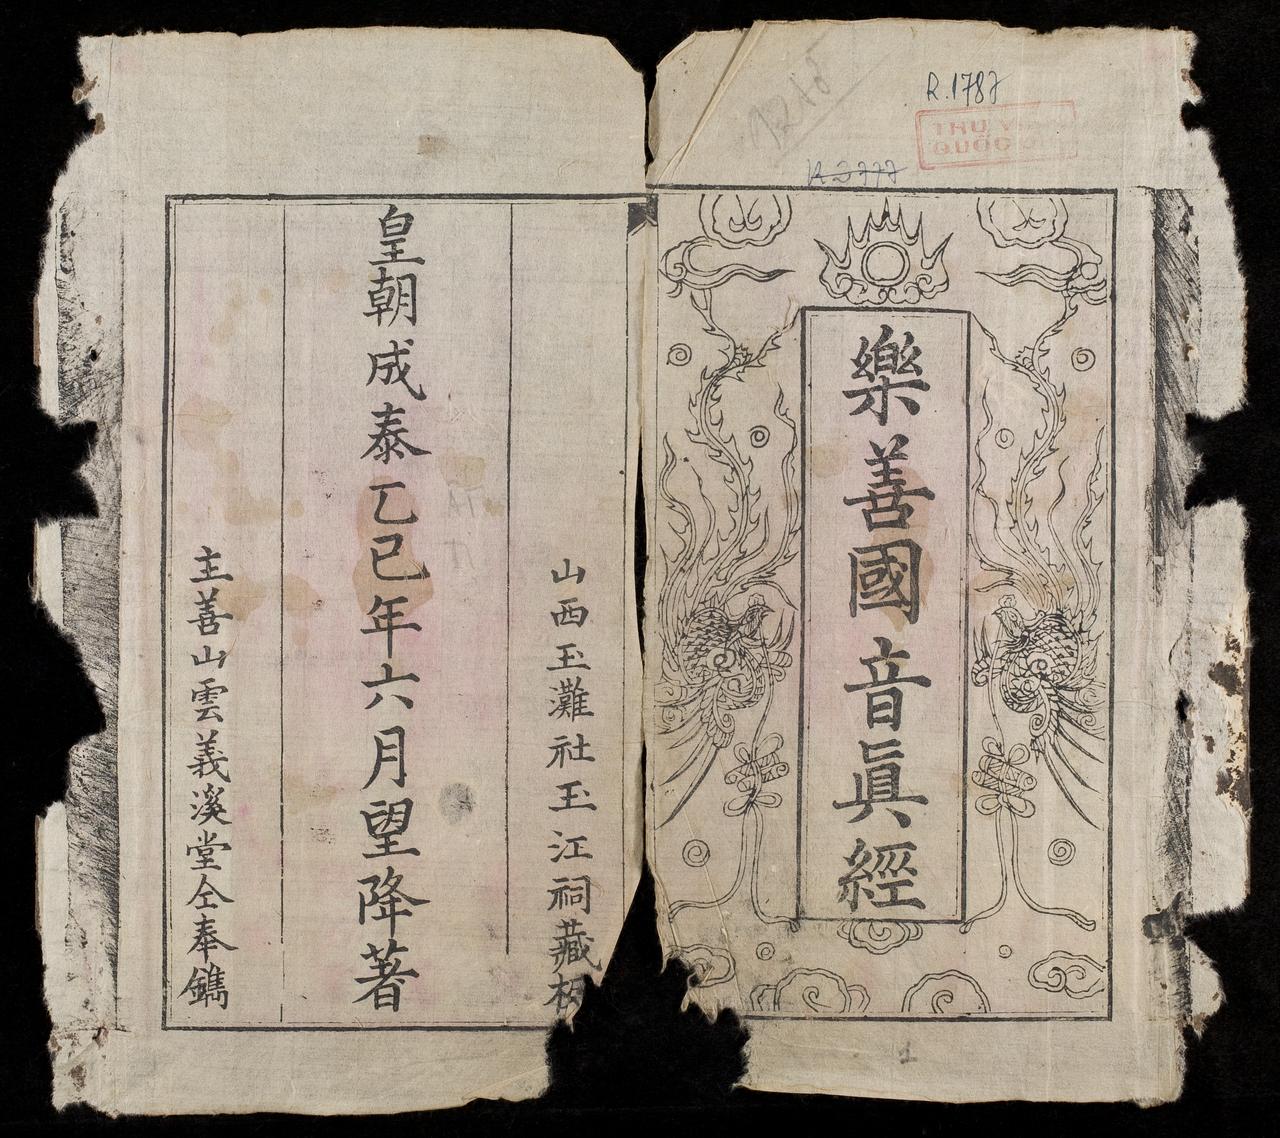 R.1787
THƯ V
QUỐC
樂善國音眞經
山西玉灘社玉江祠藏板
皇朝成泰乙巳年六月望降著
主善山雲義溪堂仝奉鐫